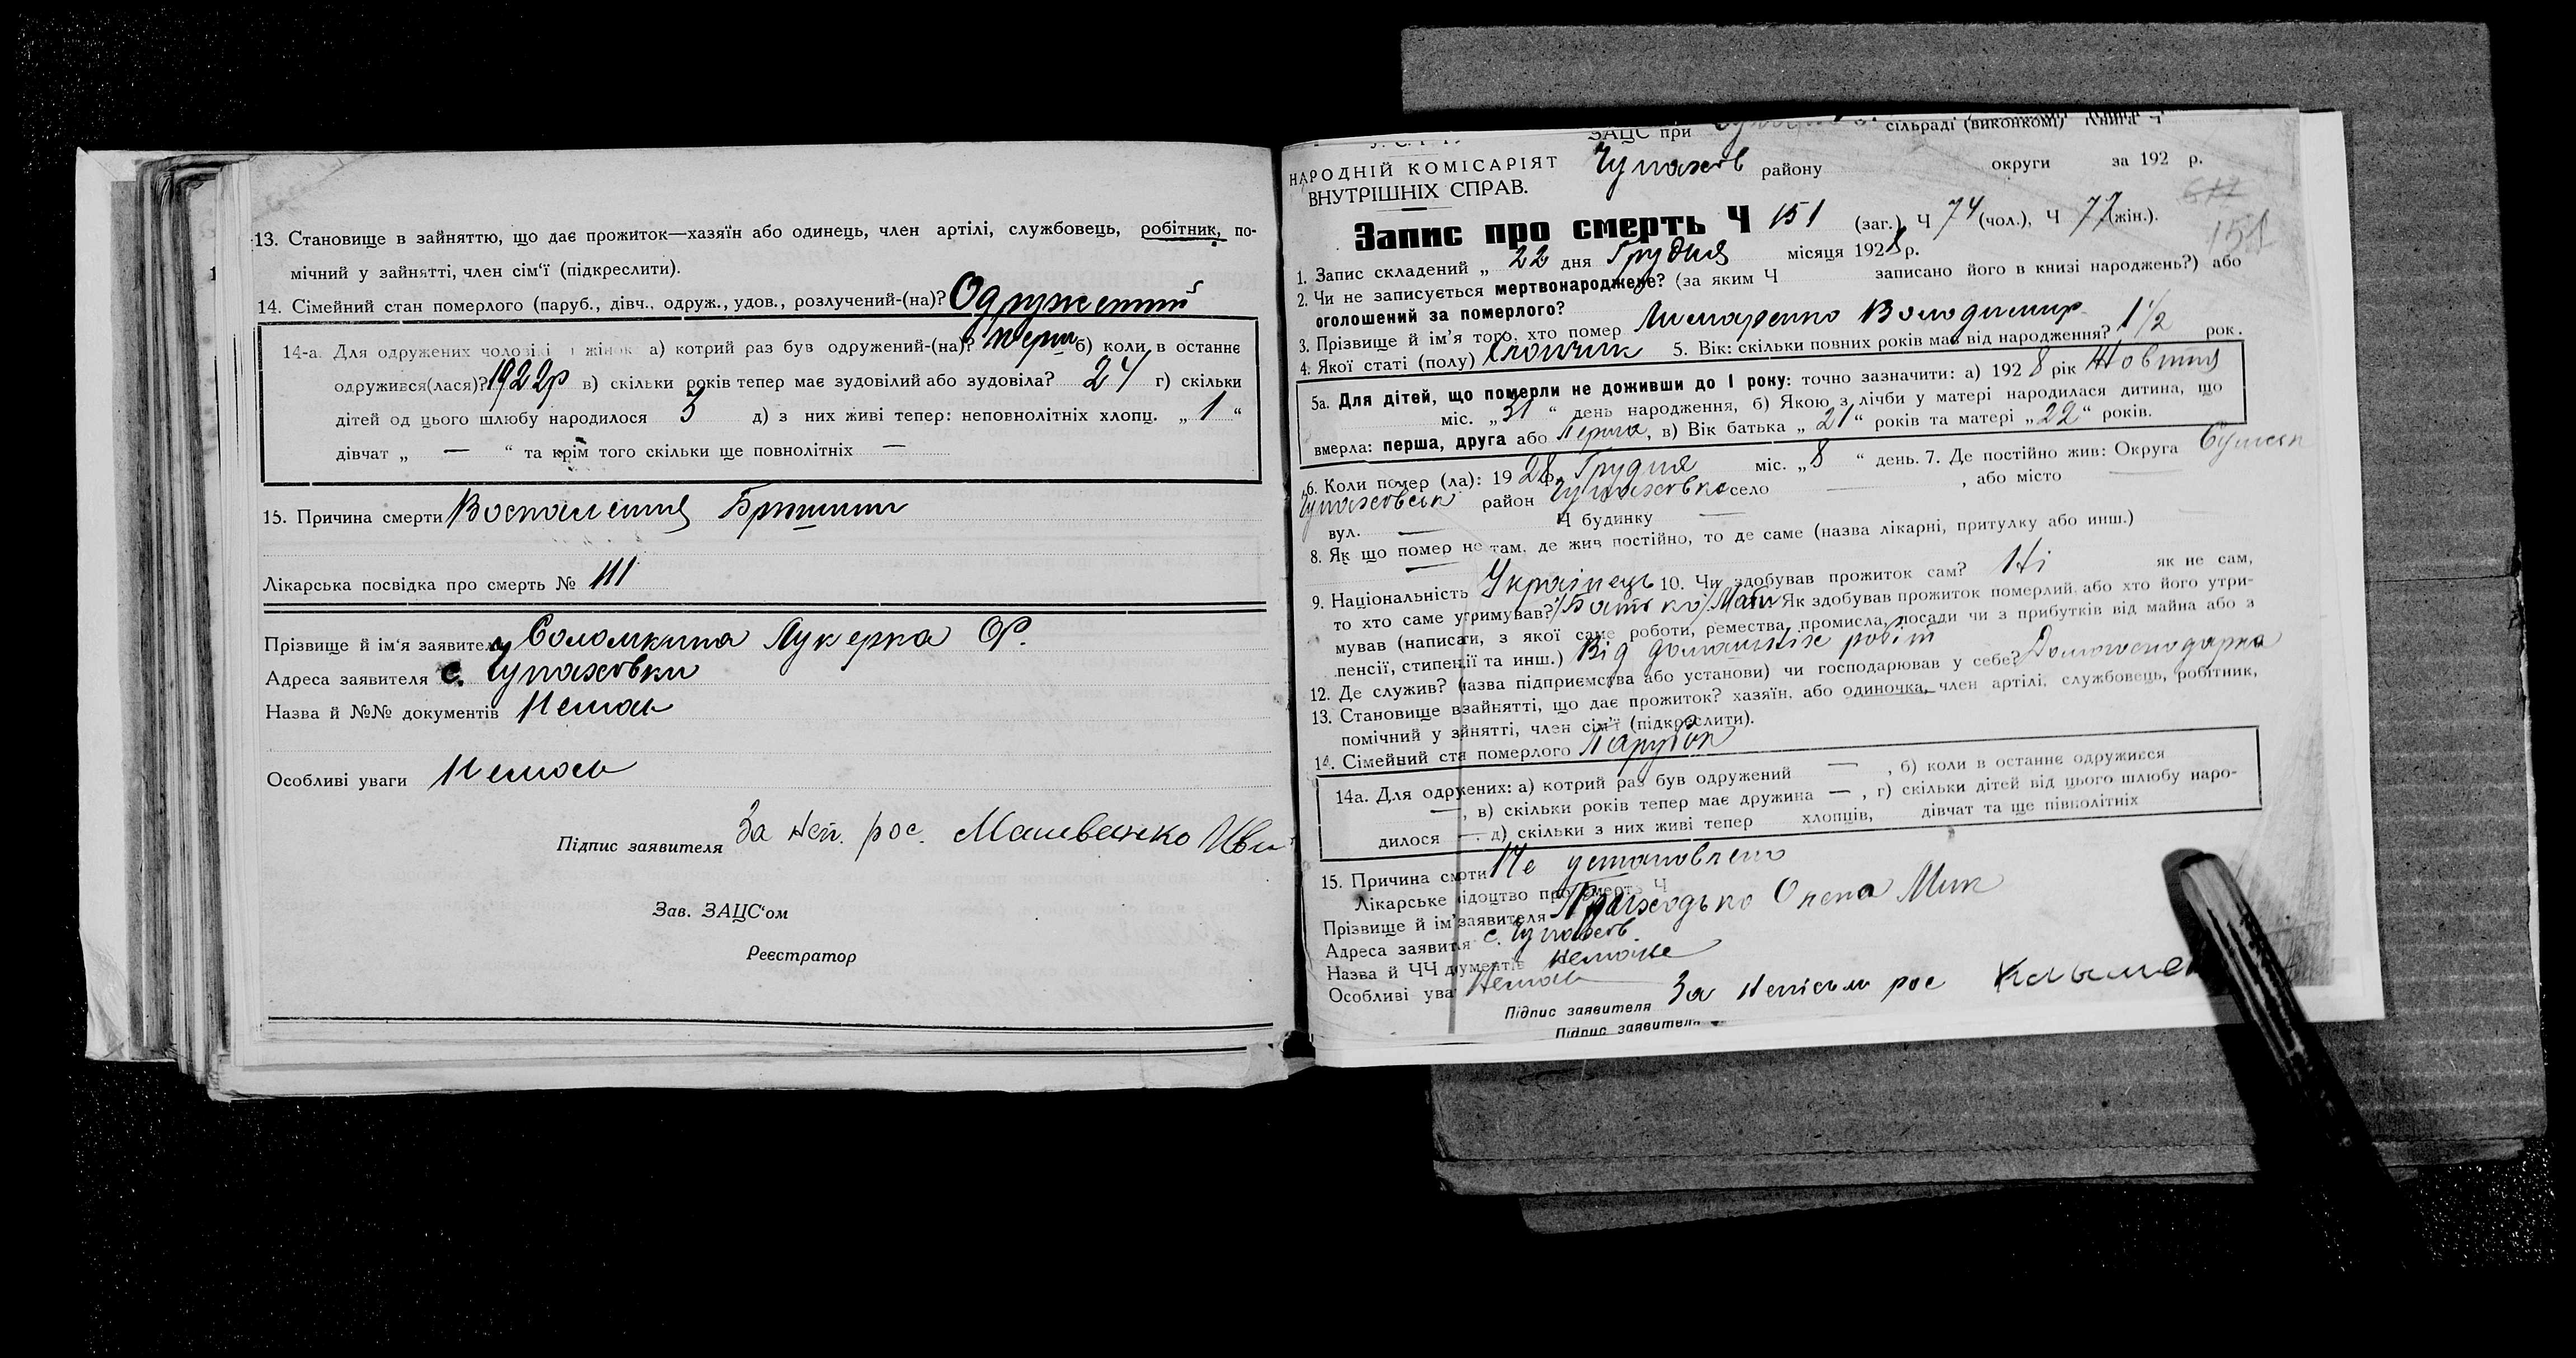 13. Становище в зайняттю, що дає прожиток—хазяїн або одинець, член артілі, службовець, робітник, по-
мічний у зайнятті, член сім'ї (підкреслити).
14. Сімейний стан померлого (паруб., дівч., одруж., удов., розлучений-(на)? Одружений
14-а. Для одружених чоловіків і жінок а) котрий раз був одружений-(на)? перш б) коли в останнє
одружився(лася)? 1922р в) скільки років тепер має зудовілий або зудовіла? 24 г) скільки
дітей од цього шлюбу народилося 3 д) з них живі тепер: неповнолітніх хлопц. „ 1 “
дівчат „ — “ та крім того скільки ще повнолітніх —
15. Причина смерти Воспаления
Лікарська посвідка про смерть № 111
Прізвище й ім'я заявителя Соломкина Лукерка Ф.
Адреса заявителя с. Чупаховки
Назва й №№ документів Немає
Особливі уваги Немає
Підпис заявителя За неп. рос.
Зав. ЗАЦС'ом
Реєстратор
ЗАЦС при сільраді (виконкомі) Книга Ч
НАРОДНІЙ КОМІСАРІЯТ Чупахов району округи за 192 р.
ВНУТРІШНІХ СПРАВ.
Запис про смерть Ч 151 (заг.), Ч 74 (чол.), Ч 77 (жін.).
151
1. Запис складений „ 22 дня Грудня місяця 1928 р.
2. Чи не записується мертвонароджене? (за яким Ч записано його в книзі народжень?) або
оголошений за померлого?
3. Прізвище й ім'я того, хто помер Володимир
4. Якої статі (полу) Хлопчик 5. Вік: скільки повних років мав від народження? 1 1/2 рок.
5а. Для дітей, що померли не доживши до 1 року: точно зазначити: а) 192 8 рік Жовтня
міс. „ 31 “ день народження, б) Якою з лічби у матері народилася дитина, що
вмерла: перша, друга або Перша, в) Вік батька „ 21 “ років та матері „ 22 “ років.
6. Коли помер (ла): 19 28 р. Грудня міс. „ 8 “ день. 7. Де постійно жив: Округа Сумськ
Чупаховськ район Чупаховка село — , або місто —
вул. — Ч будинку —
8. Як що помер не там, де жив постійно, то де саме (назва лікарні, притулку або инш.)
9. Національність Українець 10. Чи здобував прожиток сам? Ні як не сам,
то хто саме утримував? Батько/Мати Як здобував прожиток померлий, або хто його утри-
мував (написати, з якої саме роботи, ремества, промисла, посади чи з прибутків від майна або з
пенсії, стипендії та инш.) Від домашніх робіт
12. Де служив? (назва підприємства або установи) чи господарював у себе? Домогосподарка
13. Становище в зайнятті, що дає прожиток? хазяїн, або одиночка, член артілі, службовець, робітник,
помічний у зайнятті, член сім'ї (підкреслити).
14. Сімейний ста померлого Парубок
14а. Для одружених: а) котрий раз був одружений — , б) коли в останнє одружився
—, в) скільки років тепер має дружина — , г) скільки дітей від цього шлюбу наро-
дилося —. д) скільки з них живі тепер хлопців, дівчат та ще півнолітніх
15. Причина смрти Не установлено
Лікарське відоцтво про смерть Ч
Прізвище й ім'я заявителя Приходько Олена Мик
Адреса заявитля с. Чупахов
Назва й ЧЧ документів Немає
Особливі ува Немає
Підпис заявителя За неписьм рос
Підпис заявителя